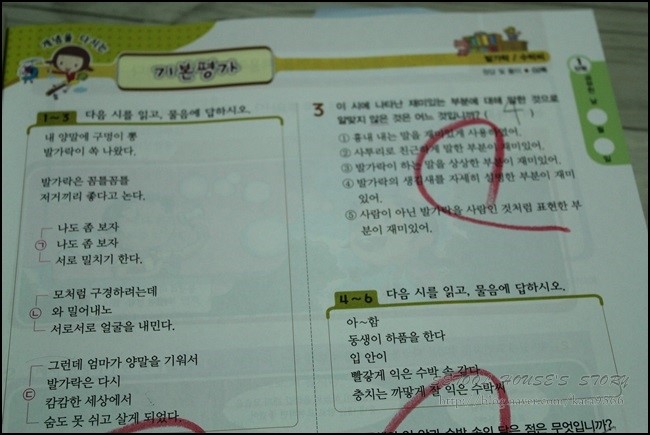 개념을 다지는
기본평가
발가락 / 수박씨
1~3 다음 시를 읽고, 물음에 답하시오.
내 양말에 구멍이 뽕
발가락이 쏙 나왔다.
발가락은 꼼틀꼼틀
저거끼리 좋다고 논다.
㉠
나도 좀 보자
나도 좀 보자
서로 밀치기 한다.
㉡
모처럼 구경하려는데
와 밀어내노
서로서로 얼굴을 내민다.
㉢
그런데 엄마가 양말을 기워서
발가락은 다시
캄캄한 세상에서
숨도 못 쉬고 살게 되었다.
3 이 시에 나타난 재미있는 부분에 대해 말한 것으로
알맞지 않은 것은 어느 것입니까? ( 4 )
① 흉내 내는 말을 재미있게 사용하였어.
② 사투리로 친근하게 말한 부분이 재미있어.
③ 발가락이 하는 말을 상상한 부분이 재미있어.
④ 발가락의 생김새를 자세히 설명한 부분이 재미
있어.
⑤ 사람이 아닌 발가락을 사람인 것처럼 표현한 부
분이 재미있어.
4~6 다음 시를 읽고, 물음에 답하시오.
아~함
동생이 하품을 한다
입 안이
빨갛게 익은 수박 속 같다
충치는 까맣게 잘 익은 수박씨
수박 속의 닮은 점은 무엇입니까?
1
공부한 날
월
일
HOUSE'S STORY